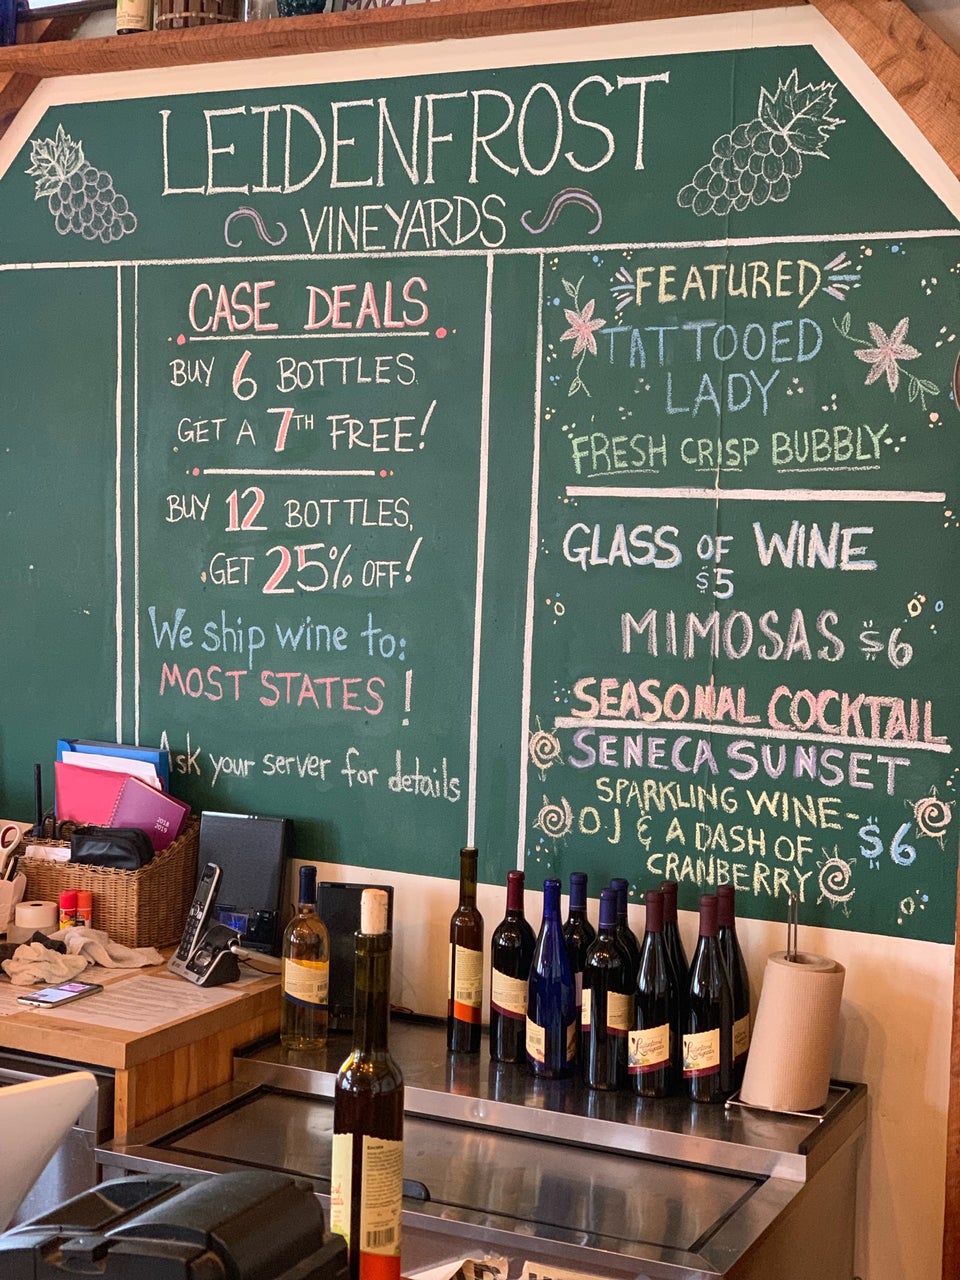 LEIDENFROST
VINEYARDS
CASE DEALS
BUY 6 BOTTLES
GET A 7TH FREE!
BUY 12 BOTTLES,
GET 25% OFF!
We ship wine to:
MOST STATES!
Ask your server for details
FEATURED
TATTOOED
LADY
FRESH CRISP BUBBLY
GLASS OF WINE
$5
MIMOSAS $6
SEASONAL COCKTAIL
SENECA SUNSET
SPARKLING WINE-
OJ & A DASH OF
CRANBERRY
$6
2018
2019
Leidenfrost
Vineyards
Leidenfrost
Vineyards